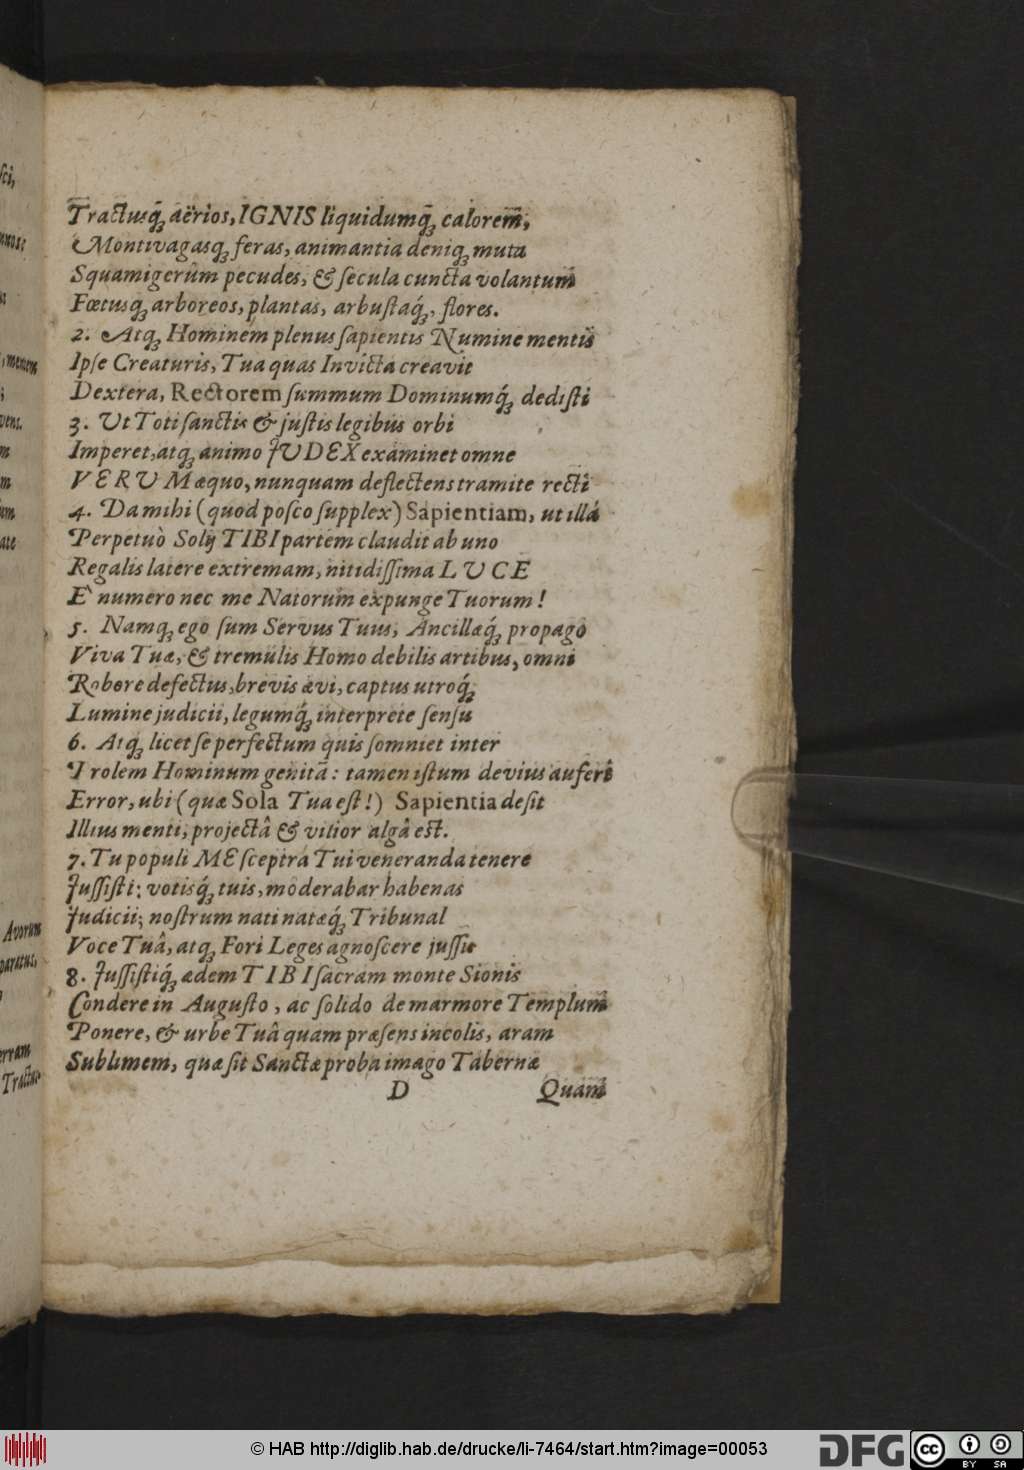 Tractusq́; aërios, IGNIS liquidumq́; calorem̃,
Montivagasq; feras, animantia deniq; muta
Squamigerûm pecudes, & secula cuncta volantum
Fœtusq; arboreos, plantas, arbustaq́;, flores.
2. Atq; Hominem plenus sapientis Numine mentis
Ipse Creaturis, Tua quas Invicta creavit
Dextera, Rectorem summum Dominumq́; dedisti
3. Ut Toti sanctis & justis legibus orbi
Imperet, atq; animo JUDEX examinet omne
VERUM æquo, nunquam deflectens tramite recti
4. Da mihi (quod posco supplex) Sapientiam, ut illá
Perpetuò Solij TIBI partem claudit ab uno
Regalis latere extremam, nitidissima LUCE
È numero nec me Natorum expunge Tuorum!
5. Namq; ego sum Servus Tuus, Ancillæq́; propago
Viva Tuæ, & tremulis Homo debilis artibus, omni
Robore defectus, brevis ævi, captus utroq́;
Lumine judicii, legumq́; interprete sensu
6. Atq; licet se perfectum quis somniet inter
Prolem Hominum genitã: tamen istum devius auferi
Error, ubi (quæ Sola Tua est!) Sapientia desit
Illius menti, projectâ & vilior algâ est.
7. Tu populi ME sceptra Tui veneranda tenere
Jussisti; votisq́; tuis, moderabar habenas
Judicii; nostrum nati natæq́; Tribunal
Voce Tuâ, atq; Fori Leges agnoscere jussit
8. Jussistiq́; ædem TIBI sacram monte Sionis
Condere in Augusto, ac solido de marmore Templum
Ponere, & urbe Tuâ quam præsens incolis, aram
Sublimem, quæ sit Sanctæ proba imago Tabernæ
D Quam
© HAB http://diglib.hab.de/drucke/li-7464/start.htm?image=00053
DFG
cc BY SA